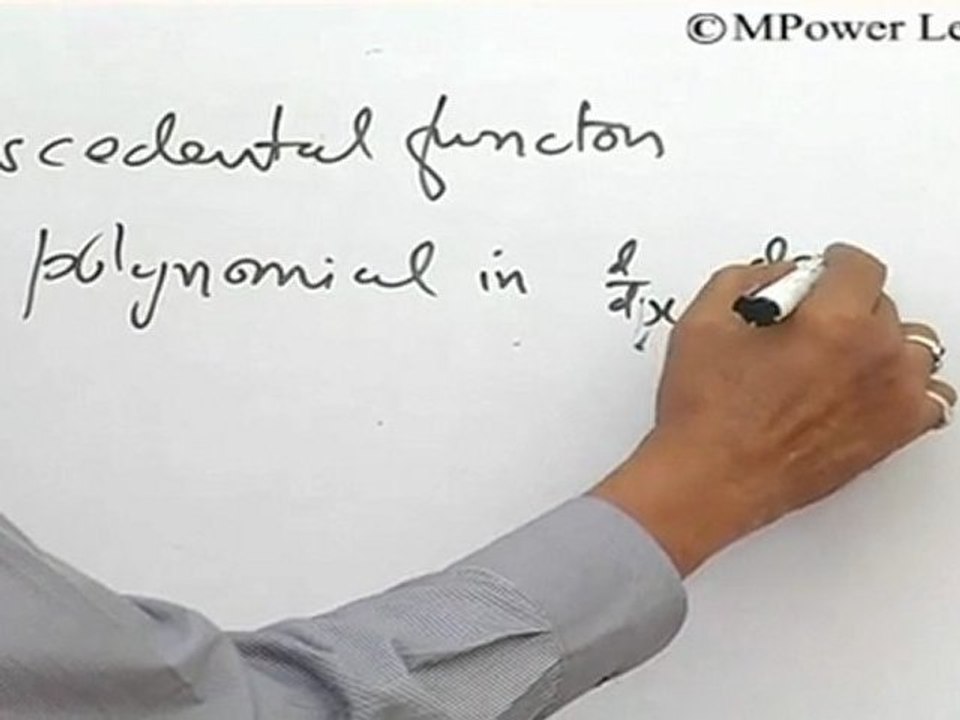 ©MPower Le
scedental functon
polynomial in d/dx